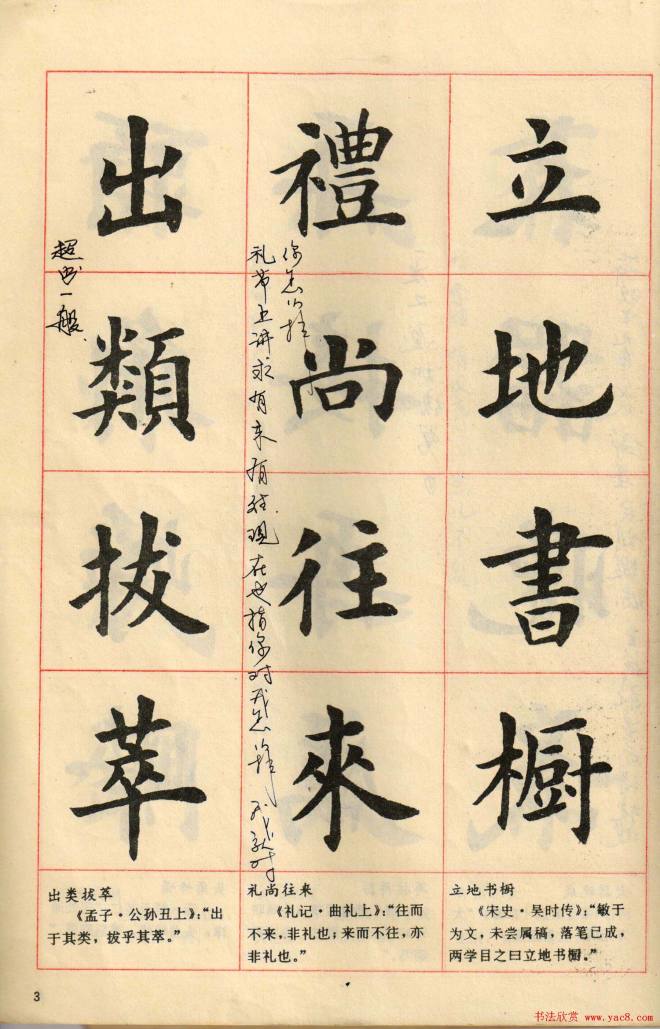 立地書橱
禮尚往來
出類拔萃
礼节上讲求有来有往现在也指你对我怎样我就对
你怎么样
超出一般
立地书橱
《宋史·吴时传》：“敏于
为文，未尝属稿，落笔已成，
两学目之曰立地书橱。”
礼尚往来
《礼记·曲礼上》：“往而
不来，非礼也；来而不往，亦
非礼也。”
出类拔萃
《孟子·公孙丑上》：“出
于其类，拔乎其萃。”
3
书法欣赏 www.yac8.com